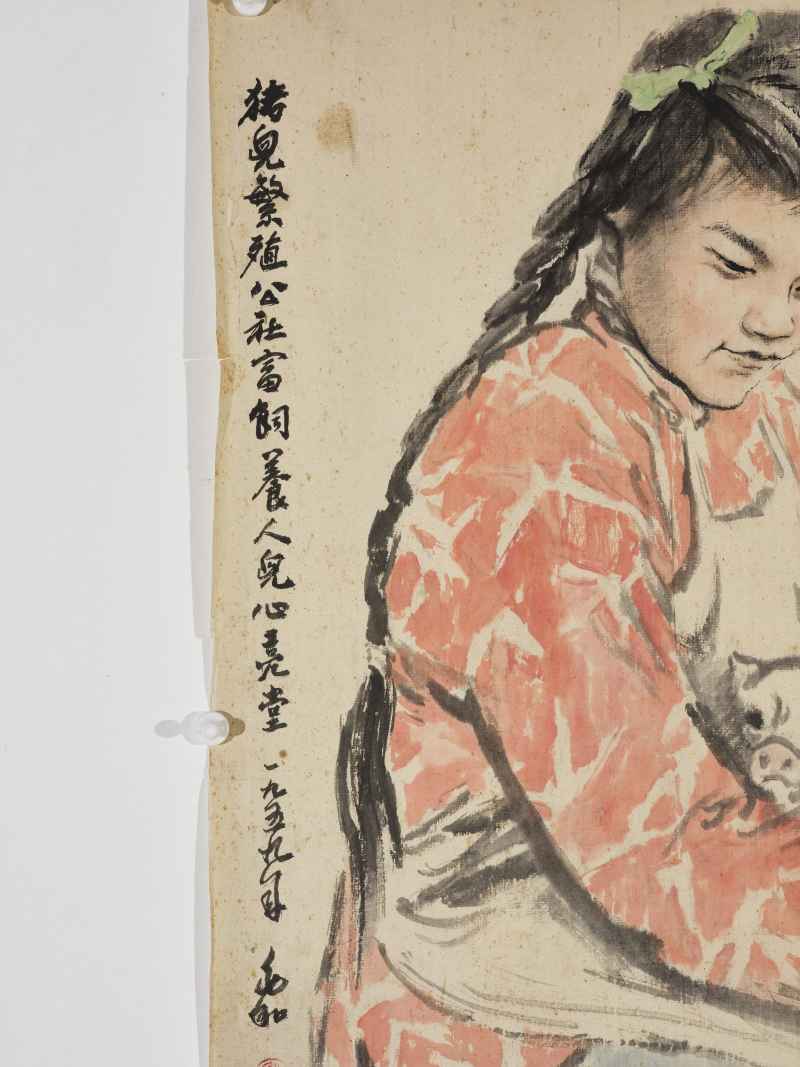 猪兒繁殖公社富飼養人兒心亮堂 一九五九年 兆和